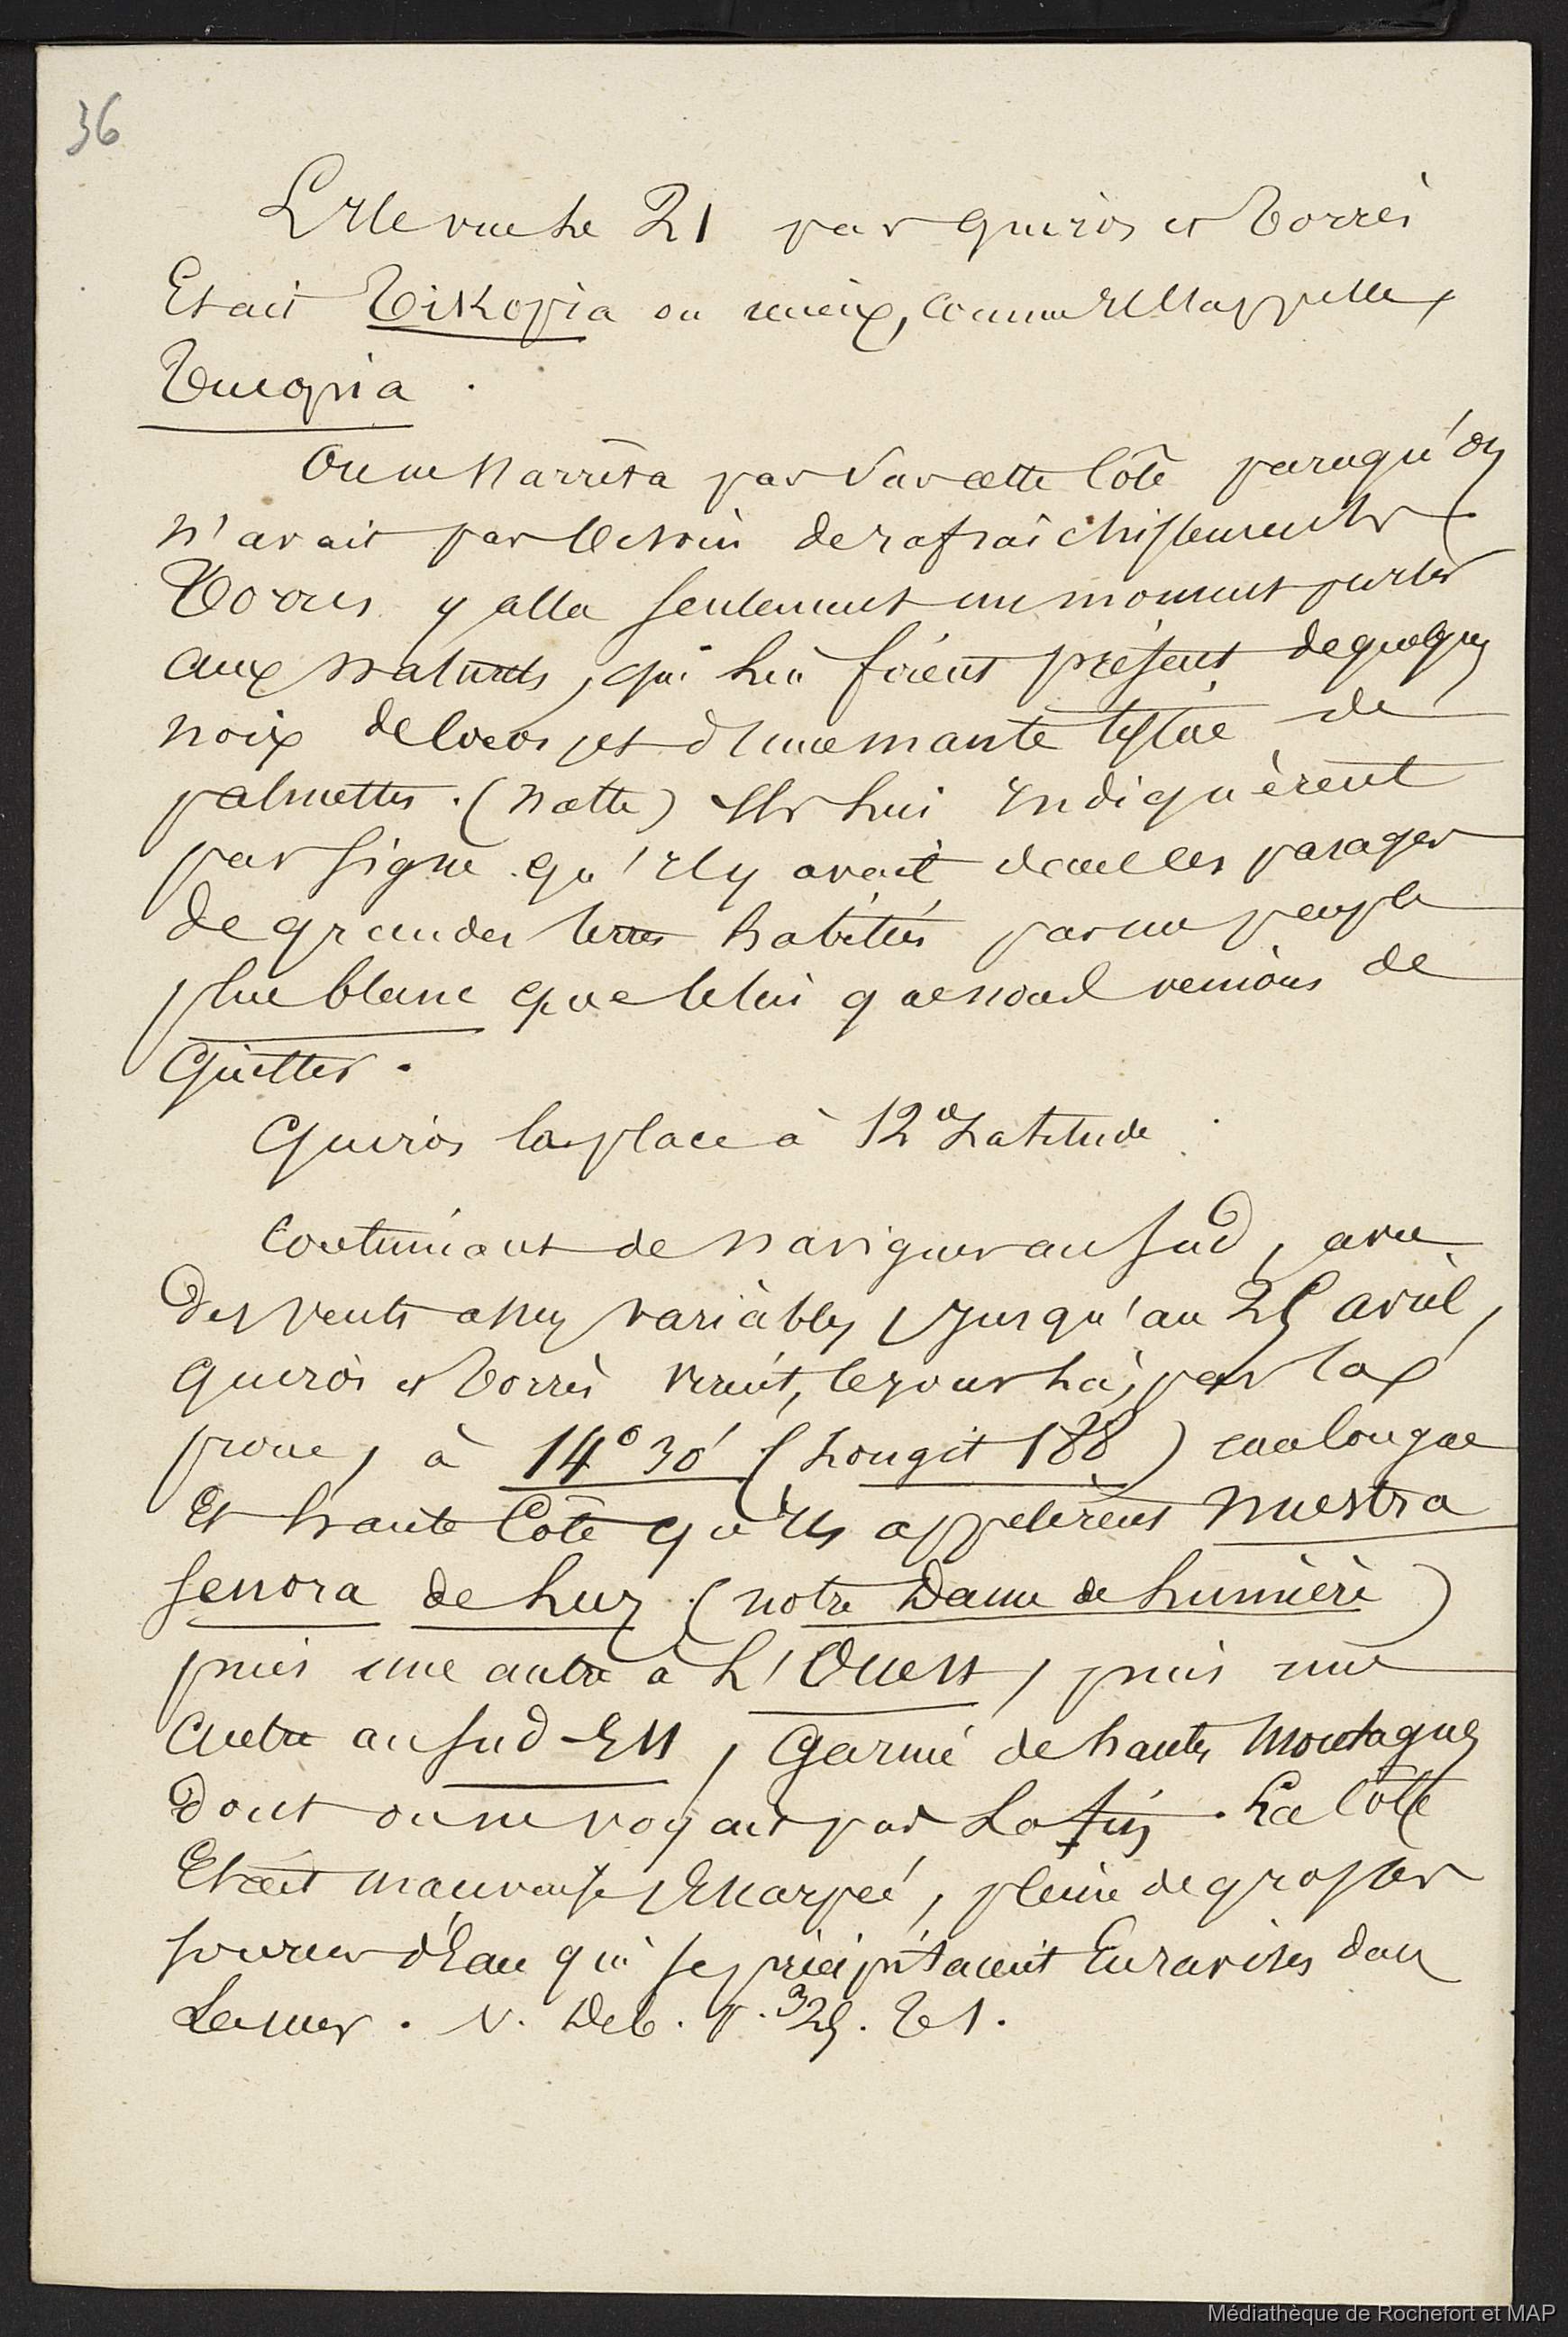 36
L'Ile vue le 21 par Quiros et Torrès
Etait Tikopia ou mieux, comme Il l'appelle,
Tucopia.
On ne s'arrêta pas sur cette Côte parcequ'on
n'avait pas besoin de rafraîchissements
Torrès y alla seulement un moment parler
aux naturels, qui lui firent présent de quelques
noix de Cocos et d'une mante tissée de
palmettes. (natte) Ils lui Indiquèrent
par signe qu'Il y avait dans les parages
de grandes terres habitées par un peuple
plus blanc que celui que nous venions de
Quitter.
Quiros la place à 12° Latitude
Continuant de naviguer au Sud, avec
des vents assez variables, Jusqu'au 25 avril,
Quiros et Torrès virent, ce jour là, par la
proue, à 14° 30' (Longit 188) une longue
Et haute Côte qu'Ils appelèrent Nuestra
Senora de Luz (Notre Dame de Lumière)
puis une autre à L'Ouest, puis une
autre au Sud-Est, Garnie de hautes Montagnes
Dont on ne voyait pas La fin. La Côte
Etait mauvaise, Escarpée, pleine de grosses
sources d'Eau qui se précipitaient En ravines dans
La mer. V. Deb. P. 325. T 1.
Médiathèque de Rochefort et MAP